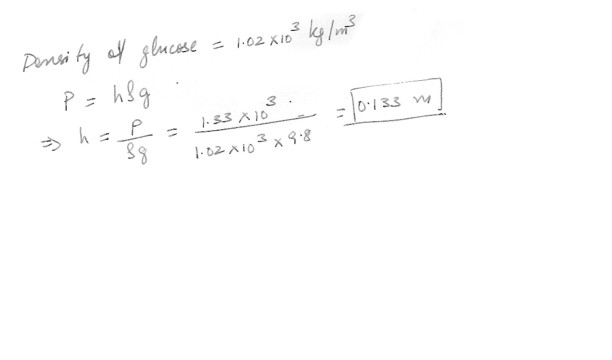 Density of glucose = 1.02 x 10³ kg/m³
P = hρg
⇒ h = P/ρg = 1.33 x 10³ / 1.02 x 10³ x 9.8 = 0.133 m